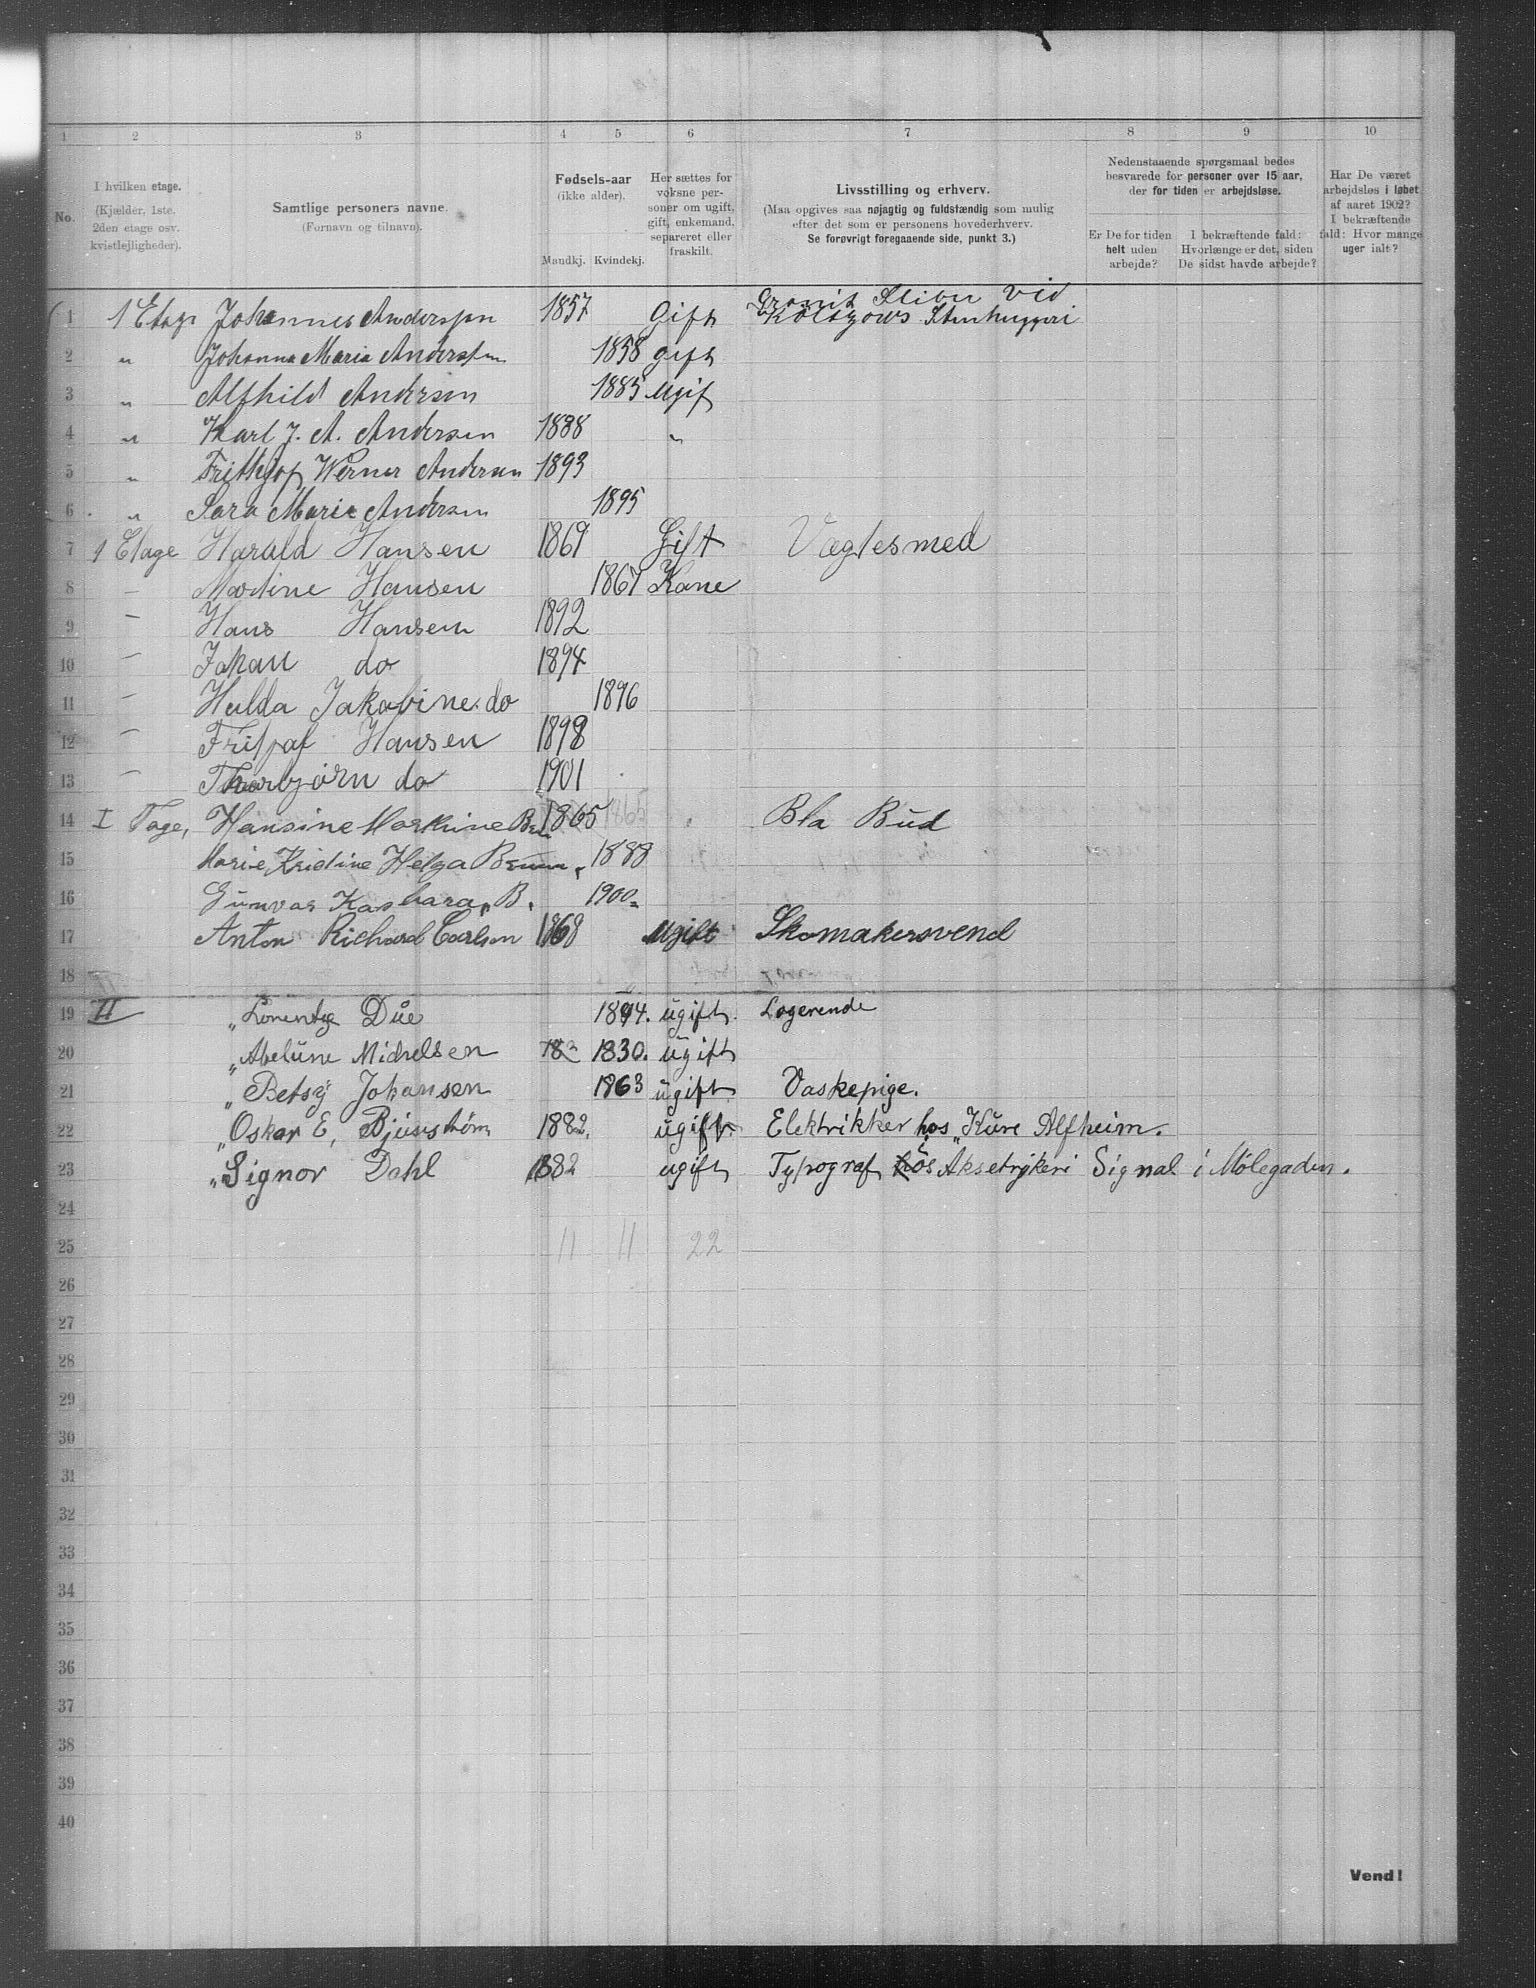 1 2 3 4 5 6 7 8 9 10
No.
I hvilken etage.
(Kjælder, 1ste.
2den etage osv.
kvistlejligheder).
Samtlige personers navne.
(Fornavn og tilnavn).
Fødsels-aar
(ikke alder).
Mandkj. Kvindekj.
Her sættes for
voksne per-
soner om ugift,
gift, enkemand,
separeret eller
fraskilt.
Livsstilling og erhverv.
(Maa opgives saa nøjagtig og fuldstændig som mulig
efter det som er personens hovederhverv.
Se forøvrigt foregaaende side, punkt 3.)
Nedenstaaende spørgsmaal bedes
besvarede for personer over 15 aar,
der for tiden er arbejdsløse.
Er De for tiden
helt uden
arbejde?
I bekræftende fald:
Hvorlænge er det, siden
De sidst havde arbejde?
Har De været
arbejdsløs i løbet
af aaret 1902?
I bekræftende
fald: Hvor mange
uger ialt?
Granit Sliber Ved
1 1 Etage Johannes Anderssen 1857 Gift Stenhuggeri
2 " Johanna Maria Anderssen 1858 gift
3 " Alfhild Andersen 1885 Ugif
4 " Karl J. A. Andersen 1888 "
5 " Frithjof Werner Andersen 1893
6 " Sara Marie Andersen 1895
7 1 Etage Harald Hansen 1869 Gift Vægtesmed
8 - Martine Hansen 1867 Kone
9 - Hans Hansen 1892
10 - Johan do 1894
11 - Hulda Jakobine do 1896
12 - Fritjof Hansen 1898
13 - Thorbjørn do 1901
14 I Tage, Hansine Markine 1865 1865 Bla Bud
15 Marie Kristine Helga 1888
16 Gunvor B. 1900
17 Anton Richard Carlsen 1868 Ugift Skomakersvend
18
19 II " Due 1894. ugift. Logerende
20 " Abeline Michelsen 18 1830. ugift
21 " Betsy Johansen 1863 ugift Vaskepige.
22 " Oskar E, 1882. ugift Elektrikker hos "Kure Alfheim.
23 " Signor Dahl 1882 ugift Typograf hos Aksetrykeri Signal i Mølegaden.
24
25 11 11 22
26
27
28
29
30
31
32
33
34
35
36
37
38
39
40
Vend!